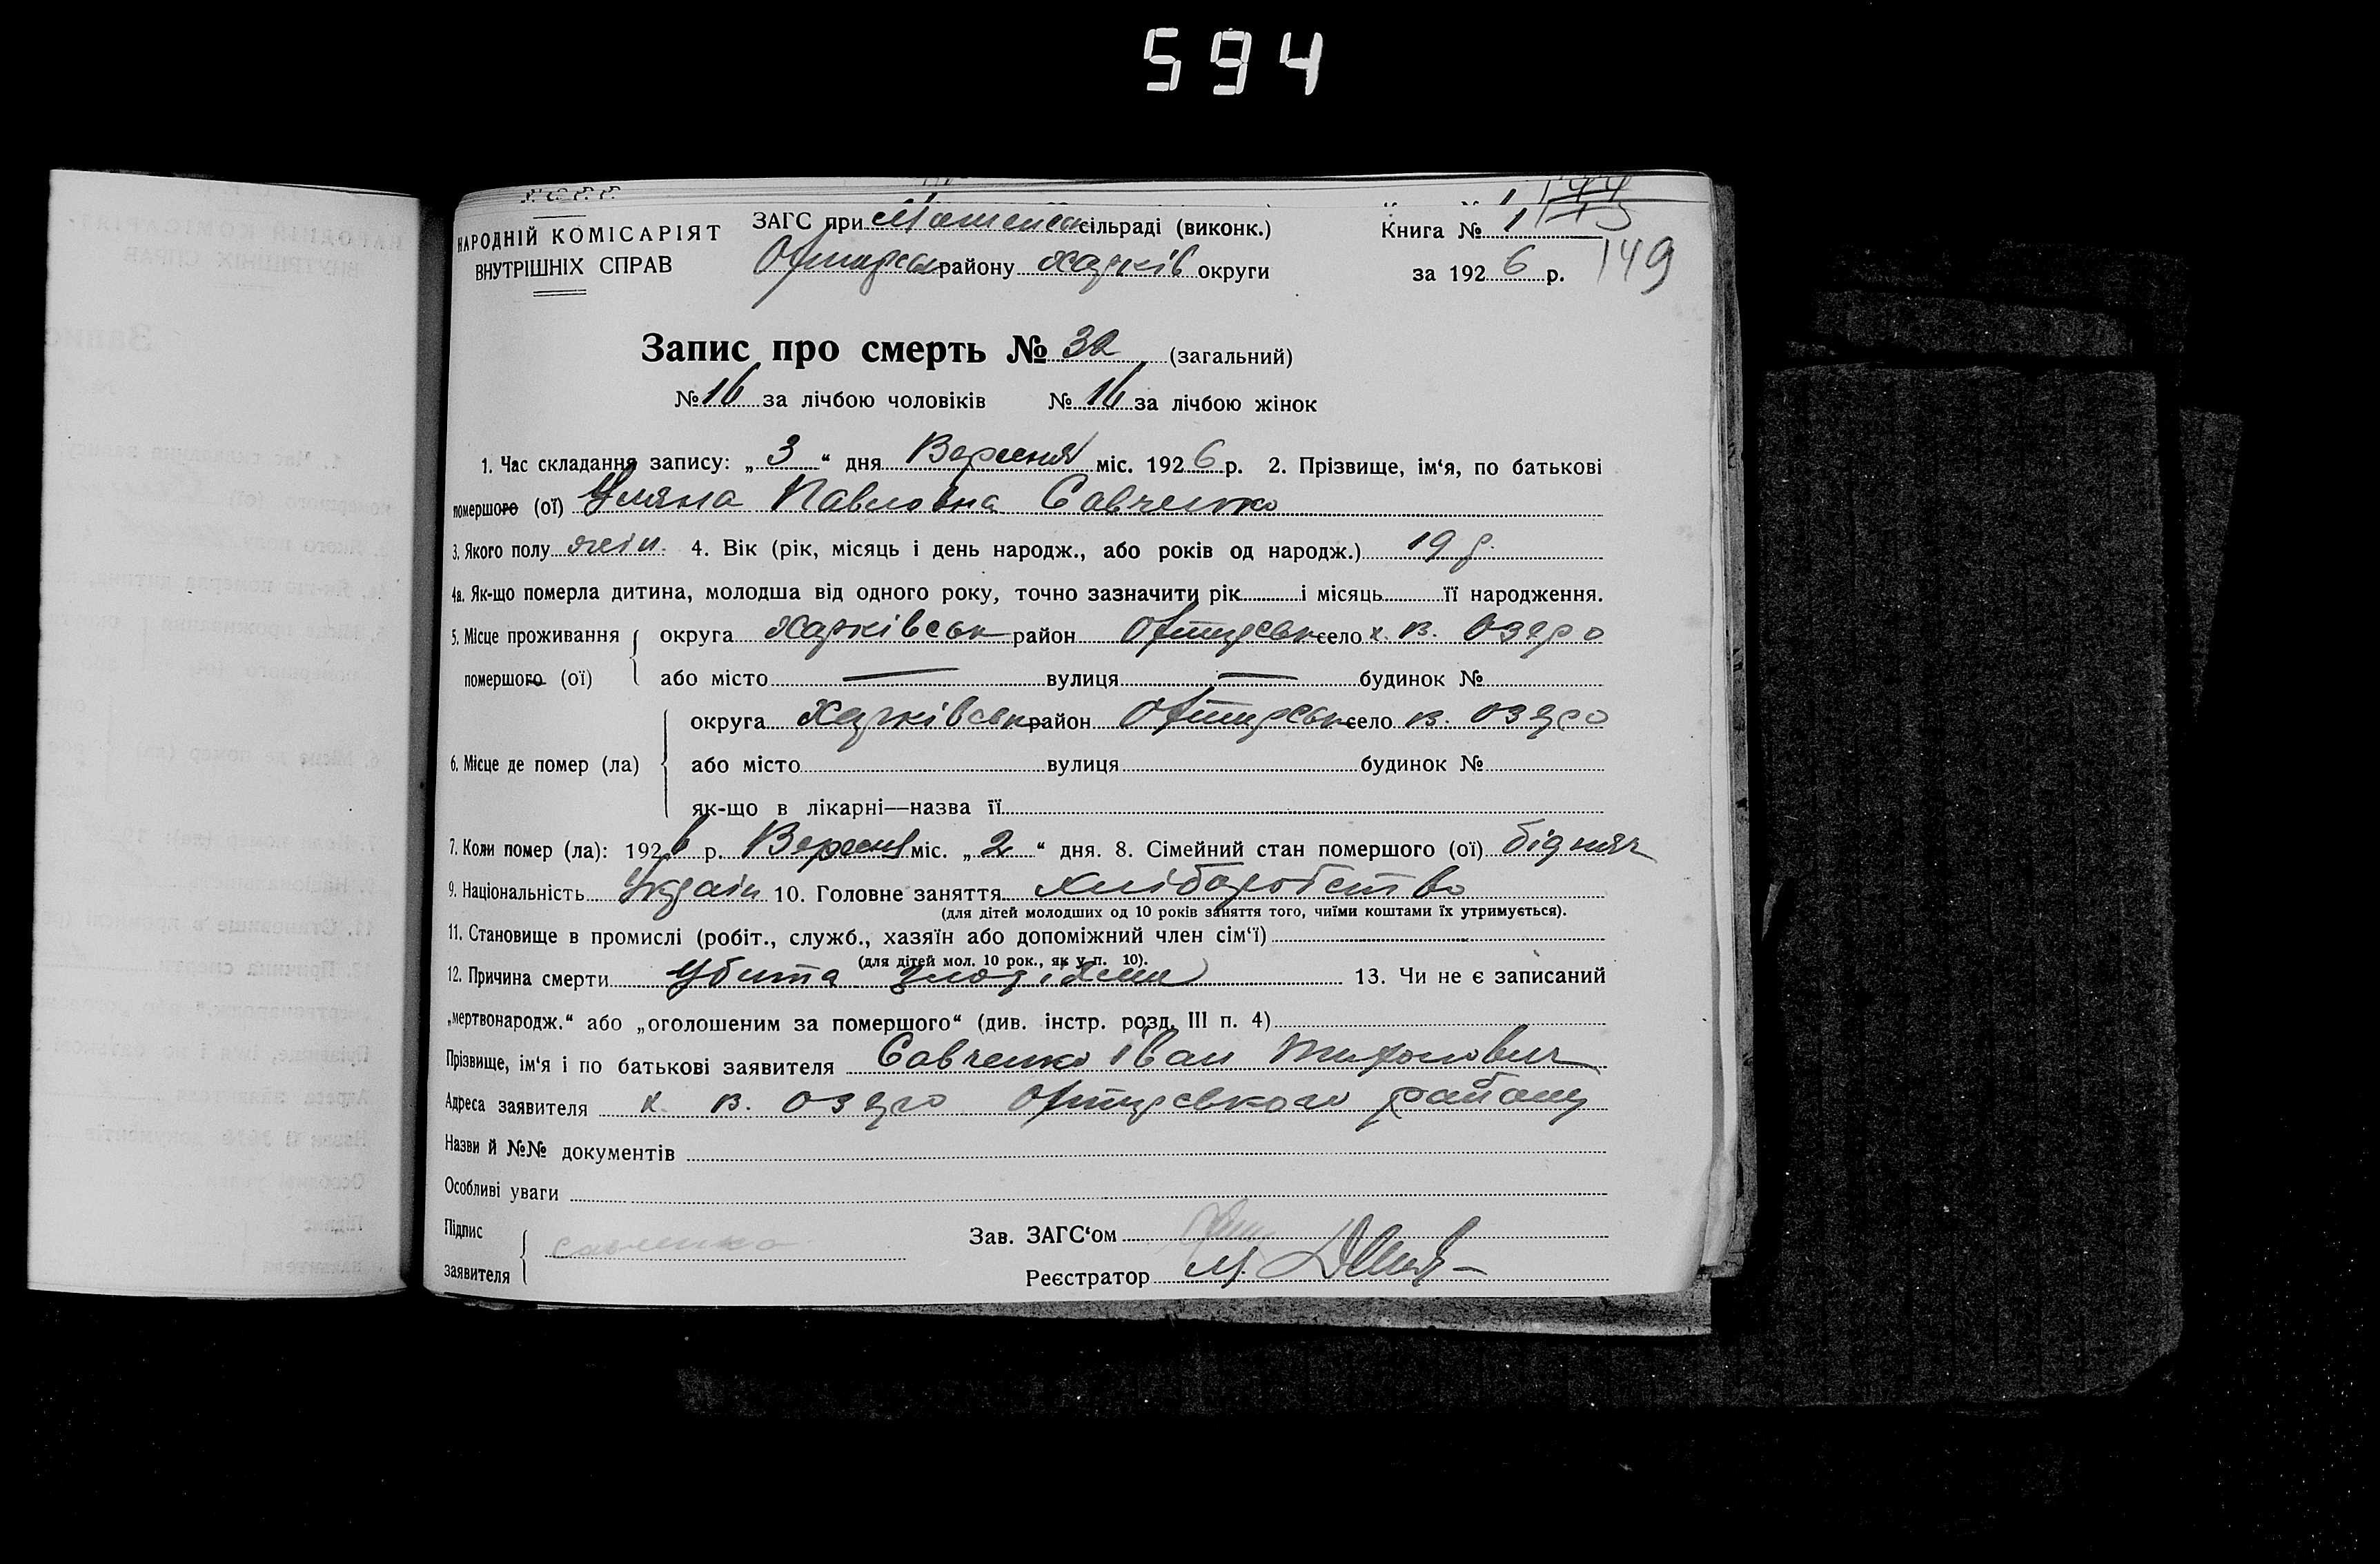 594
У. С. Р. Р.
НАРОДНІЙ КОМІСАРІЯТ
ВНУТРІШНІХ СПРАВ
ЗАГС при сільраді (виконк.)
району Харків округи
Книга № 1
за 1926 р.
149
Запис про смерть № 32 (загальний)
№ 16 за лічбою чоловіків № 16 за лічбою жінок
1. Час складання запису: „3“ дня Вересня міс. 1926 р. 2. Прізвище, ім‘я, по батькові
помершого (ої) Уляна Павловна Савченко
3. Якого полу жін. 4. Вік (рік, місяць і день народж., або років од народж.) 19 р.
4а. Як-що померла дитина, молодша від одного року, точно зазначити рік і місяць її народження.
5. Місце проживання помершого (ої) округа Харківськ район село х. В. Озеро
або місто — вулиця — будинок №
6. Місце де помер (ла) округа Харківськ район село В. Озеро
або місто вулиця будинок №
як-що в лікарні—назва її
7. Коли помер (ла): 1926 р. Вересня міс. „2“ дня. 8. Сімейний стан помершого (ої) бідняч
9. Національність Україн 10. Головне заняття хліборобство
(для дітей молодших од 10 років заняття того, чиїми коштами їх утримується).
11. Становище в промислі (робіт., служб., хазяїн або допоміжний член сім‘ї)
(для дітей мол. 10 рок., як у п. 10).
12. Причина смерти Убита злодіями 13. Чи не є записаний
„мертвонародж.“ або „оголошеним за помершого“ (див. інстр. розд. III п. 4)
Прізвище, ім‘я і по батькові заявителя Савченко Іван
Адреса заявителя х. В. Озеро району
Назви й №№ документів
Особливі уваги
Підпис заявителя Савченко
Зав. ЗАГС‘ом
Реєстратор